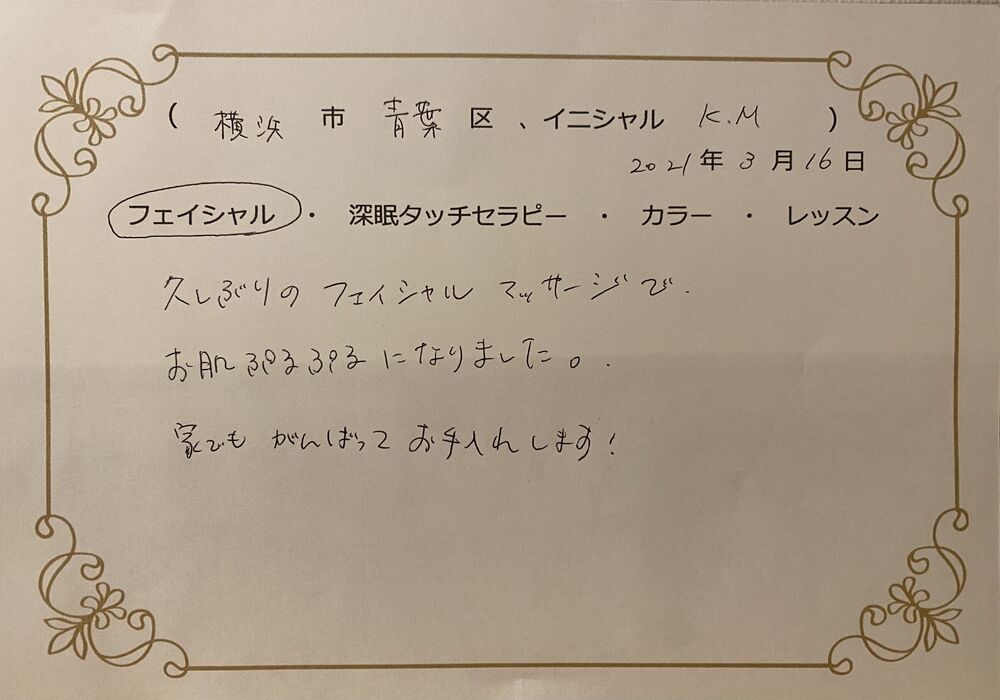 （ 横浜 市 青葉 区 、イニシャル K.M ）
2021 年 3 月 16 日
フェイシャル ・ 深眠タッチセラピー ・ カラー ・ レッスン
久しぶりの フェイシャル マッサージで、
お肌 ぷるぷるになりました。
家でも がんばって お手入れします！